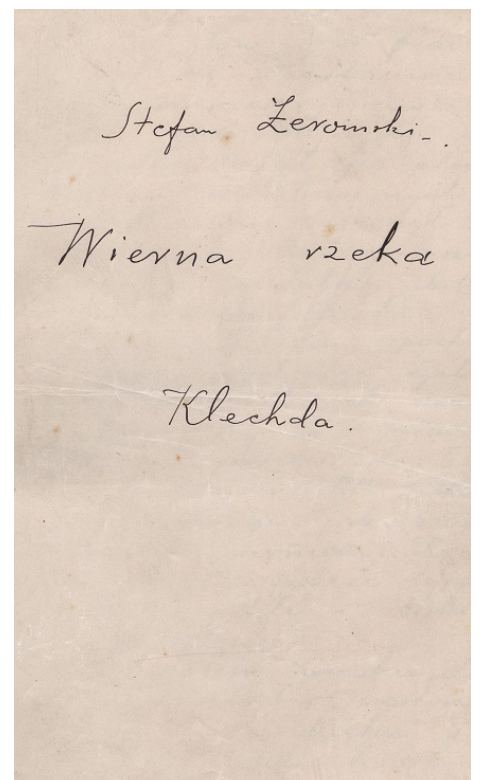 Stefan Żeromski-.
Wierna rzeka
Klechda.